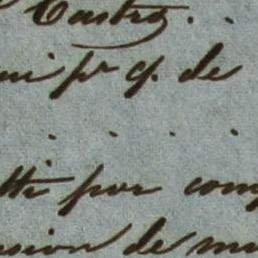 Castro. .
ni pr q. de
. . . .
tti por com
sion de mu